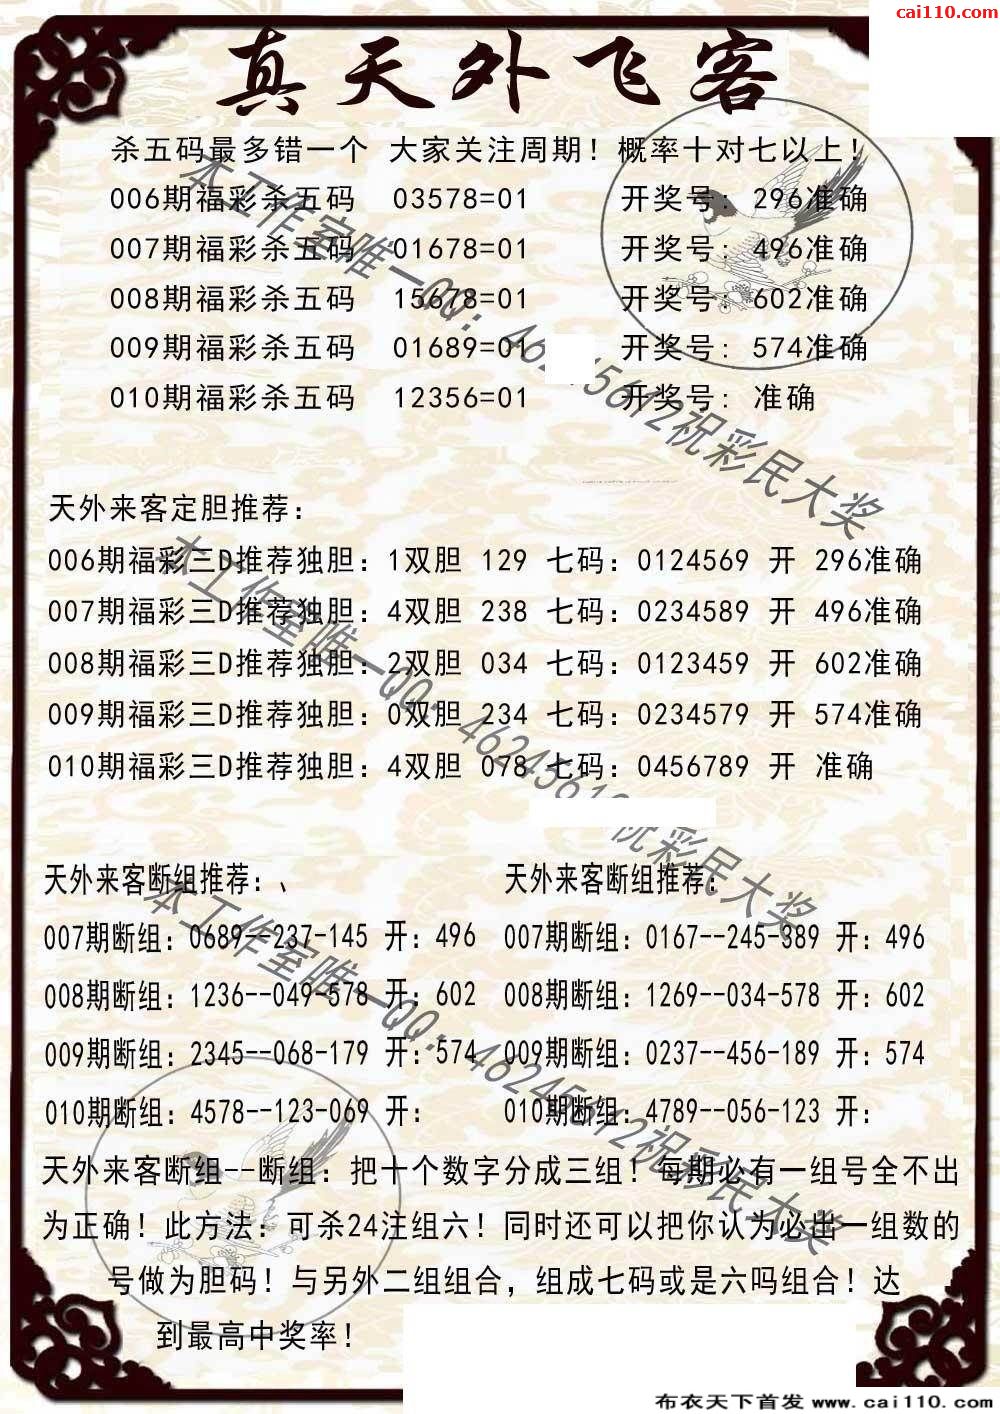 cai110.com
真天外飞客
杀五码最多错一个 大家关注周期！概率十对七以上！
006期福彩杀五码 03578=01 开奖号: 296准确
007期福彩杀五码 01678=01 开奖号: 496准确
008期福彩杀五码 15678=01 开奖号: 602准确
009期福彩杀五码 01689=01 开奖号: 574准确
010期福彩杀五码 12356=01 开奖号: 准确
天外来客定胆推荐:
006期福彩三D推荐独胆: 1双胆 129 七码: 0124569 开 296准确
007期福彩三D推荐独胆: 4双胆 238 七码: 0234589 开 496准确
008期福彩三D推荐独胆: 2双胆 034 七码: 0123459 开 602准确
009期福彩三D推荐独胆: 0双胆 234 七码: 0234579 开 574准确
010期福彩三D推荐独胆: 4双胆 078 七码: 0456789 开 准确
天外来客断组推荐:、 天外来客断组推荐:
007期断组: 0689--237-145 开: 496 007期断组: 0167--245-389 开: 496
008期断组: 1236--049-578 开: 602 008期断组: 1269--034-578 开: 602
009期断组: 2345--068-179 开: 574 009期断组: 0237--456-189 开: 574
010期断组: 4578--123-069 开: 010期断组: 4789--056-123 开:
天外来客断组--断组: 把十个数字分成三组！每期必有一组号全不出
为正确！此方法: 可杀24注组六！同时还可以把你认为必出一组数的
号做为胆码！与另外二组组合，组成七码或是六吗组合！达
到最高中奖率！
本工作室唯一QQ: 46245612祝彩民大奖
本工作室唯一QQ: 46245612祝彩民大奖
本工作室唯一QQ: 46245612祝彩民大奖
布衣天下首发 www.cai110.com